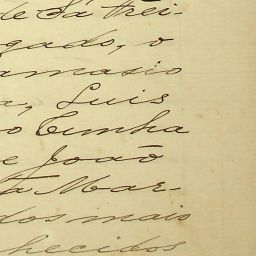 de Sá Frei-
gado, o
amasio
a, Luis
o Cunha
e João
ta Mar-
dos mais
hecidos